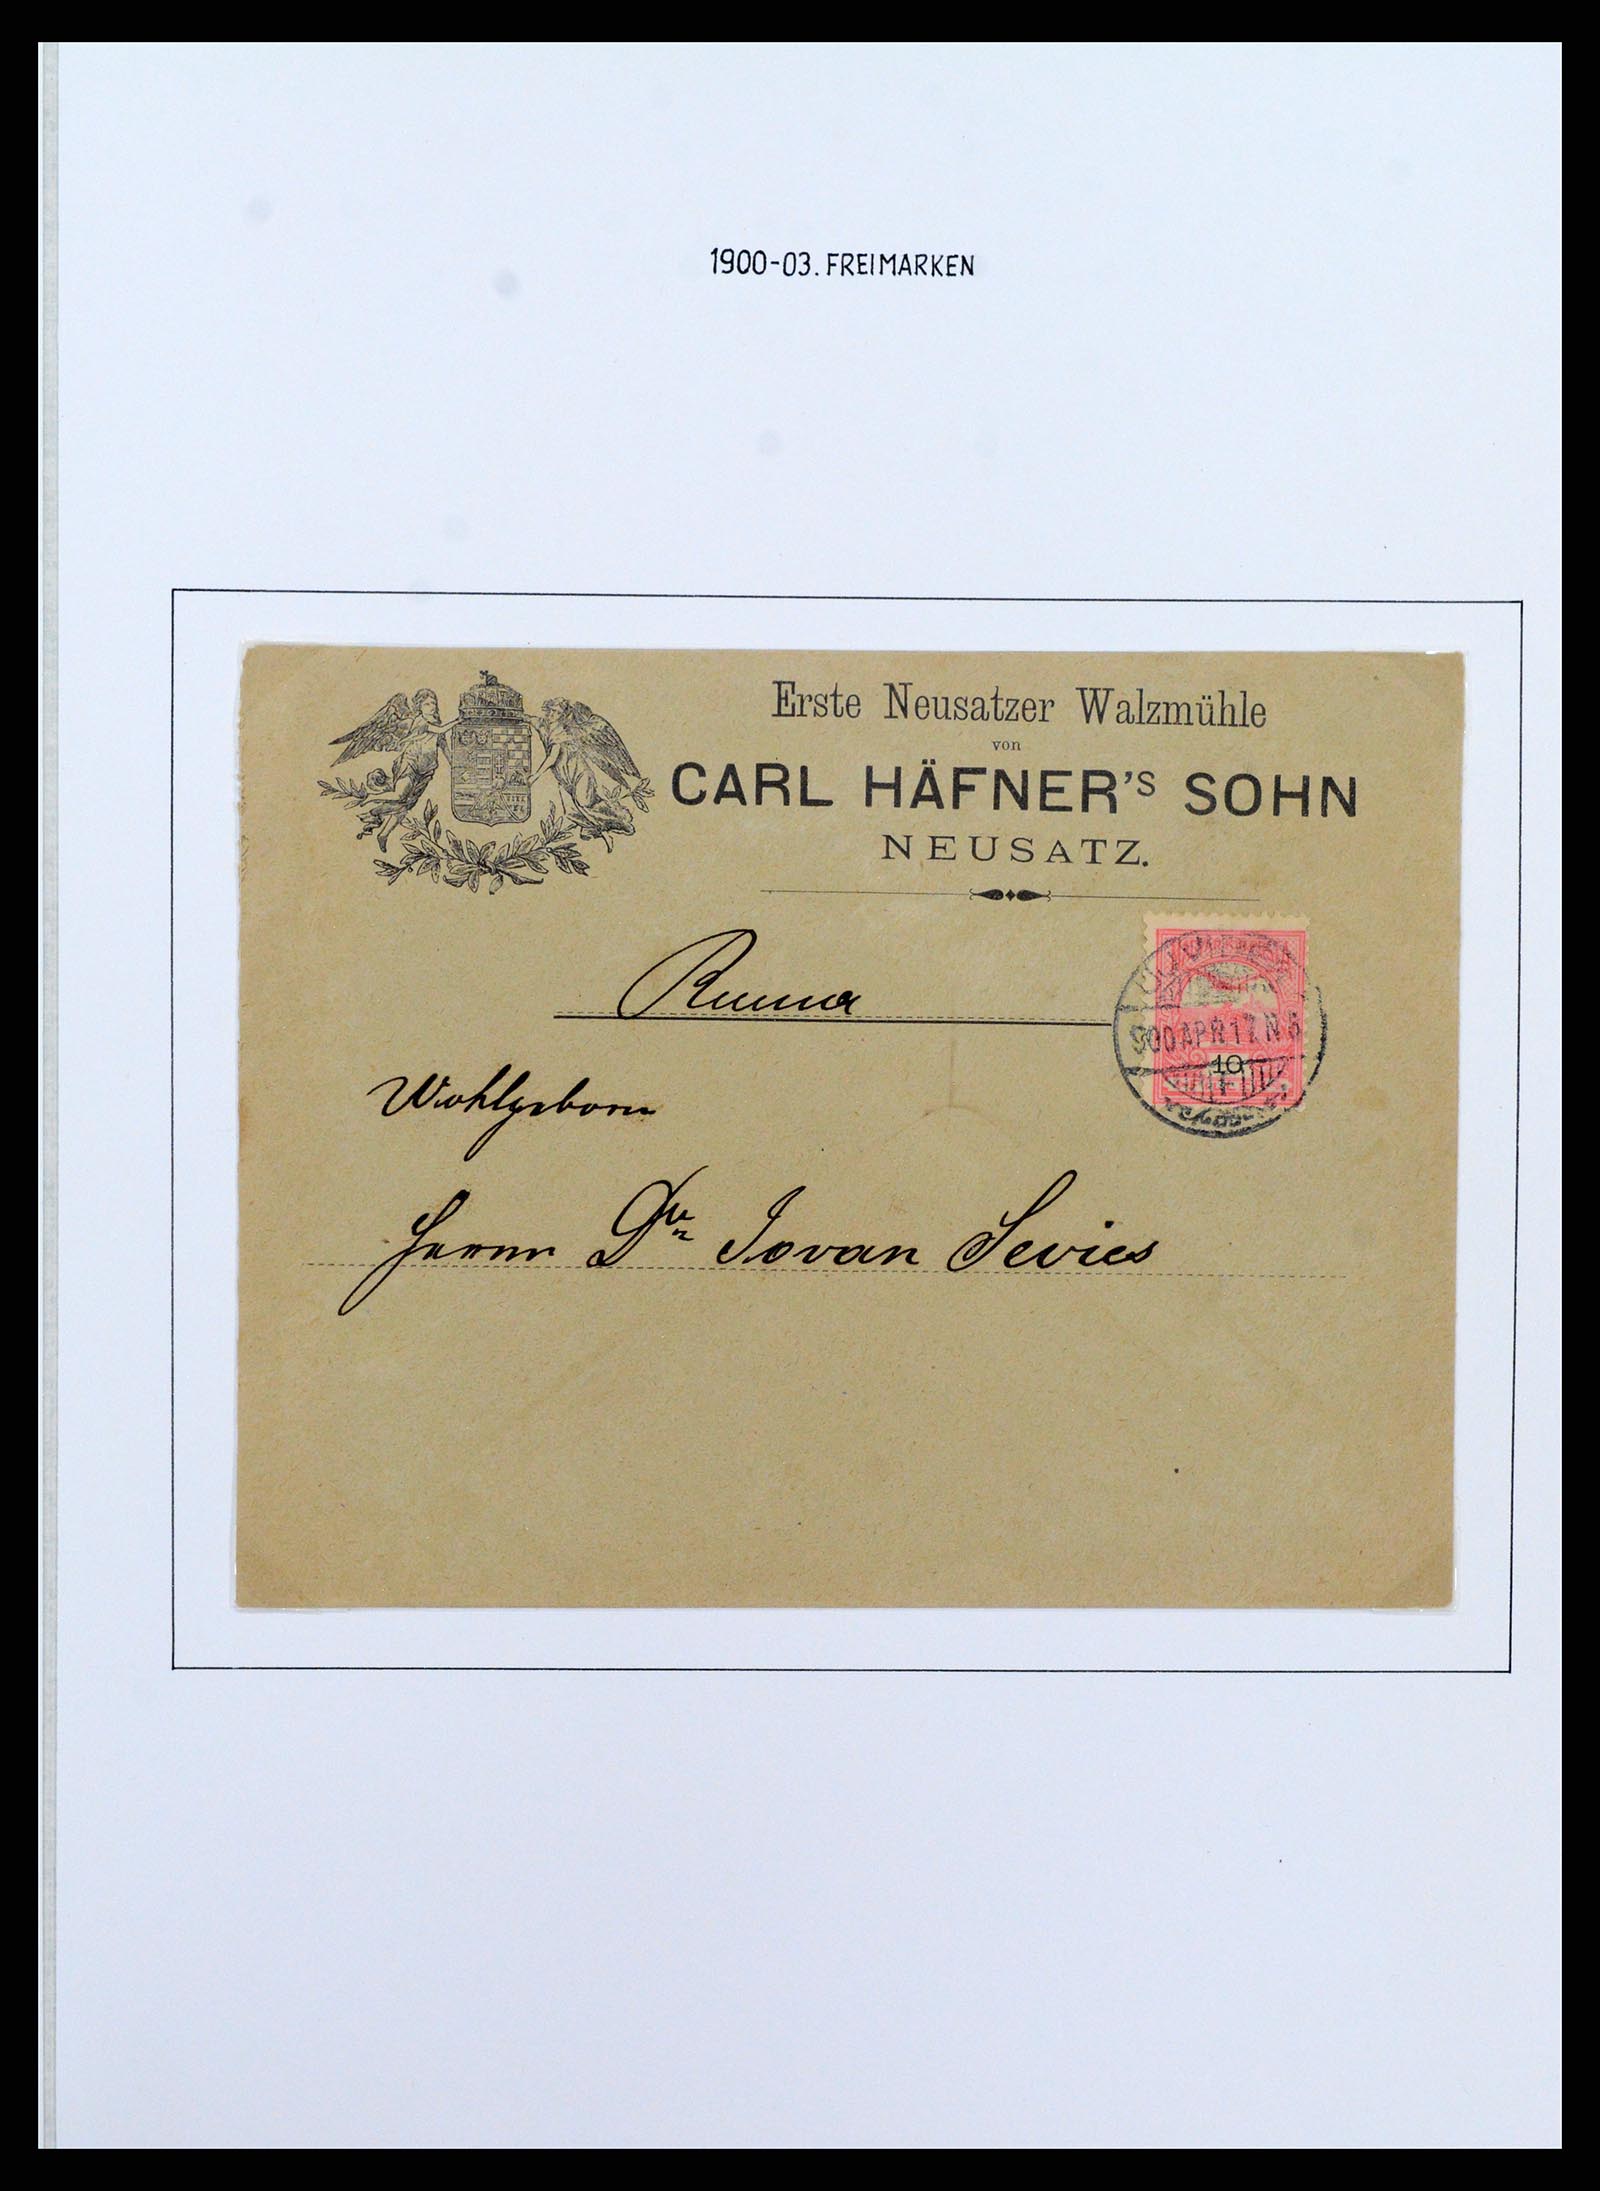 1900-03. FREIMARKEN
Erste Neusatzer Walzmühle
von
CARL HÄFNER'S SOHN
NEUSATZ.
Ruma
900 APR 17 N 5
10
Wohlgeborn
Herrn Dr Jovan Sevics